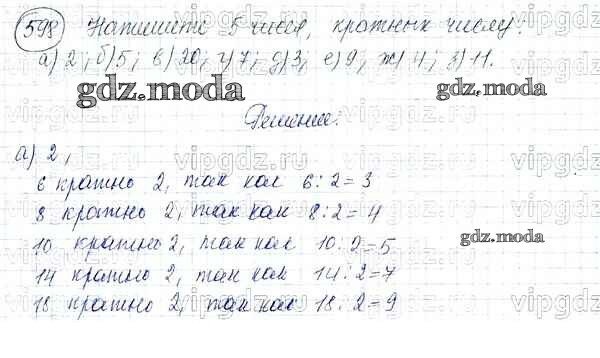 598 Напишите 5 чисел, кратных числу:
а) 2; б) 5; в) 20; г) 7; д) 3; е) 9; ж) 4; з) 11.
gdz.moda
Решение:
а) 2,
6 кратно 2, так как 6:2=3
8 кратно 2, так как 8:2=4
gdz.moda
10 кратно 2, так как 10:2=5
14 кратно 2, так как 14:2=7
18 кратно 2, так как 18:2=9
vipgdz.ru